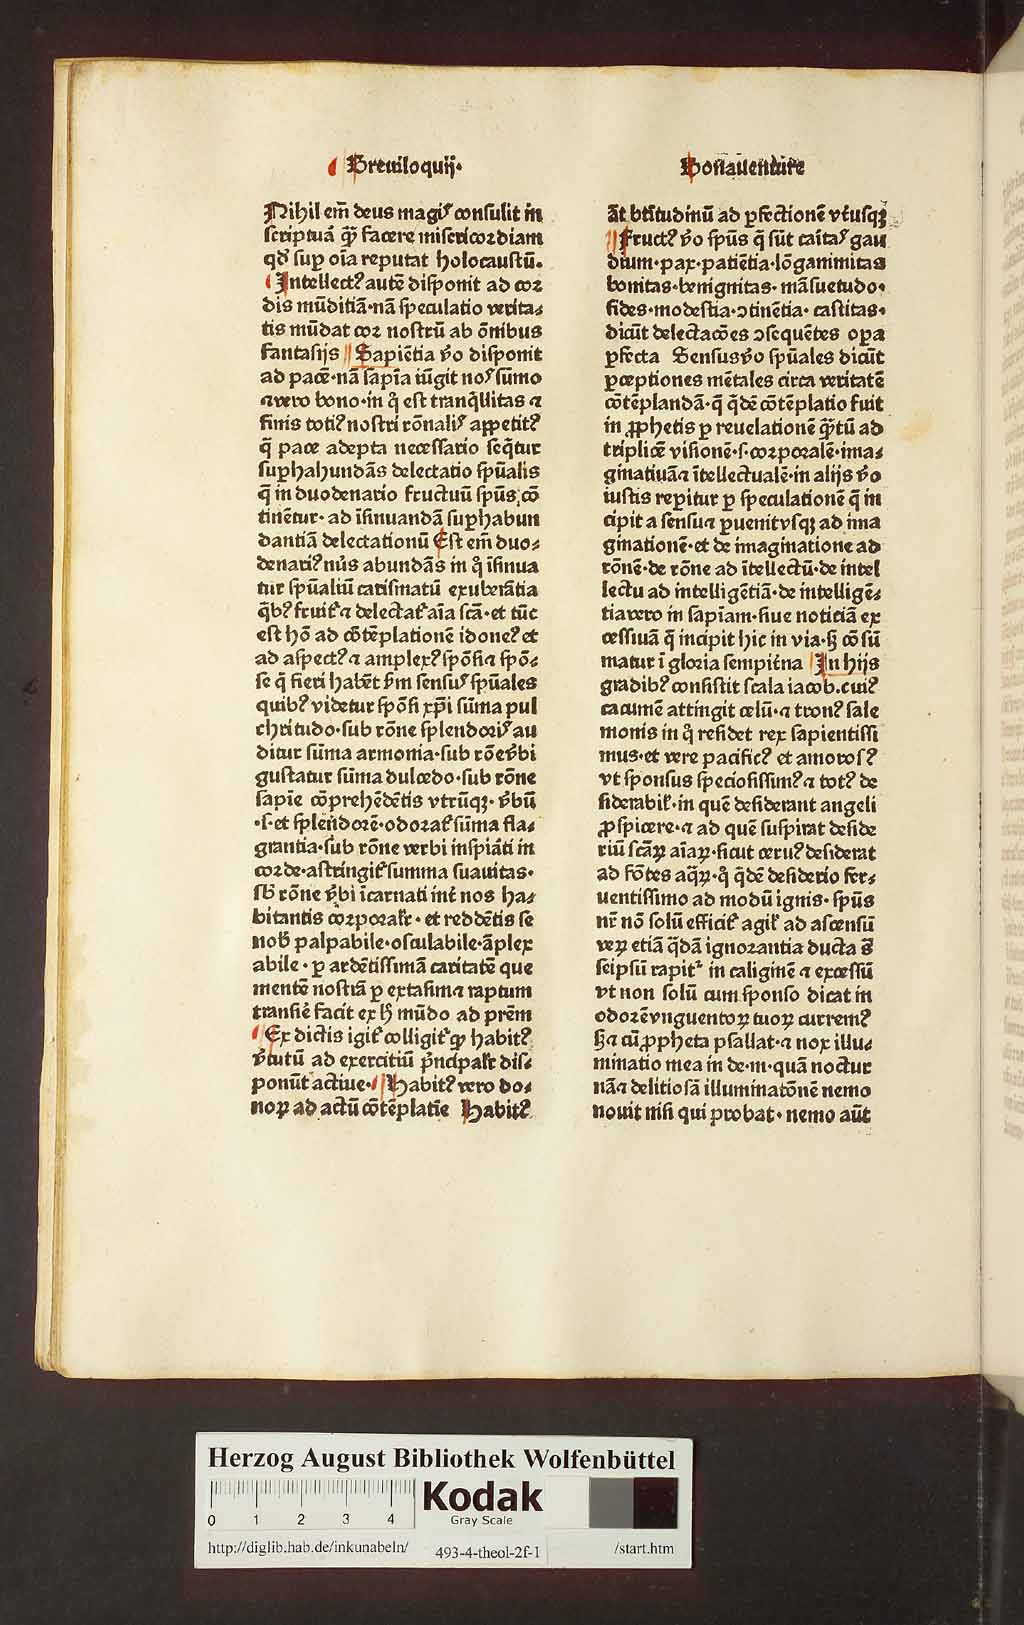 Breuiloquij·
Bonauenture
Nihil em̄ deus magiꝰ consulit in
scriptuā qͣꝫ facere misericordiam
qd̓ suꝑ oīa reputat holocaustū·
Intellectꝰ autē disponit ad cor
dis mūditiā·nā speculatio verita⸗
tis mūdat cor nostrū ab ōnibus
fantasijs Sapiētia v̓o disponit
ad pacē·nā sapīa iūgit noꝰ sūmo
⁊vero bono·in q̄ est tranq̇llitas ⁊
finis totiꝰ nostri rōnaliꝰ appetitꝰ
q̄ pace adepta necessario seq̄tur
suꝑhabundās delectatio spūalis
q̄ in duodenario fructuū spūs cō
tinētur· ad īsinuandā suꝑhabun
dantiā delectationū Est em̄ duo⸗
denariꝰ nu̓s abundās in q̊ īsinua
tur spūaliū carismatū exuberātia
q̄bꝰ fruit᷑ ⁊ delectat᷑ aīa scā·et tūc
est hō ad cōtēplationē idoneꝰ et
ad aspectꝰ ⁊ amplexꝰ spōsi⁊ spō⸗
se q̄ fieri habēt ẜm sensuꝰ spūales
quibꝰ videtur spōsi xp̄i sūma pul
chritudo·sub rōne splendoriꝰ au
ditur sūma armonia·sub rōev̓bi
gustatur sūma dulcedo·sub rōne
sapīe cōprehēdētis vtrūqꝫ· v̓bū
·s·et splendorē·odorat᷑ sūma fla⸗
grantia·sub rōne verbi inspiāti in
corde·astringit᷑ summa suauitas·
sb̓ rōne v̓bi īcarnati int̓ nos ha⸗
bitantis corporalr̓· et reddētis se
nob̓ palpabile·osculabile·āplex
abile·ꝑ ardētissimā caritatē que
mentē nostrā ꝑ extasim⁊ raptum
transir̓ facit ex hͦ mūdo ad prēm
Ex dictis igit᷑ colligit᷑ ꝙ habitꝰ
v̓tutū ad exercitiū pͥncipalr̓ dis⸗
ponūt actiue· Habitꝰ vero do⸗
noꝝ ad actū cōtēplatīe Habitꝰ
āt btītudinū ad ꝑfectionē vtͥusqꝫ
Fructꝰ v̓o spūs q̄ sūt caītaꝰ gau
dium·pax·patiētia·lōganimitas
bonitas·benignitas· māsuetudo·
fides·modestia·ꝯtinētia· castitas·
dicūt delectacōes ꝯsequētes oꝑa
ꝑfecta Sensusv̓o spūales dicūt
ꝑceptiones mētales circa veritatē
cōtēplandā·q̄ q̇dē cōtēplatio fuit
in ꝓphetis ꝑ reuelationē qͣꝫtū ad
triplicē visionē·s·corporalē·ima⸗
ginatiuā⁊ ītellectualē·in alijs v̓o
iustis reꝑitur ꝑ speculationē q̄ in
cipit a sensu⁊ ꝑuenitvsqꝫ ad ima
ginationē·et de imaginatione ad
rōnē·de rōne ad ītellectū·de intel
lectu ad intelligētiā·de intelligē⸗
tiavero in sapīam·siue noticiā ex
cessiuā q̄ incipit hic in via·sꝫ cō sū
matur ī gloria sempit̓na In hijs
gradibꝰ consistit scala iacob.cuiꝰ
cacumē attingit celū·⁊ tronꝰ sale
monis in q̄ residet rex sapientissi
mus·et vere pacificꝰ et amorosꝰ
vt sponsus speciosissimꝰ ⁊ totꝰ de
siderabil̓·in quē desiderant angeli
ꝓspicere·⁊ ad quē suspirat deside
riū scāꝝ aīaꝝ·sicut ceruꝰ desiderat
ad fōtes aq̄ꝝ·q̊ q̇dē desiderio fer⸗
uentissimo ad modū ignis· spūs
nr̄ nō solū efficit᷑ agil̓ ad ascensū
veꝝ etiā q̇dā ignorantia ducta s̄
seipsū rapit᷑ in caliginē ⁊ excessū
vt non solū cum sponso dicat in
odorēvnguentoꝝ tuoꝝ curremꝰ
sꝫ⁊ cū ꝓpheta psallat·⁊ nox illu⸗
minatio mea in de·m·quā noctur
nā⁊ delitiosā illuminatōnē nemo
nouit nisi qui probat·nemo aūt
Herzog August Bibliothek Wolfenbüttel
0 1 2 3 4
Kodak
Gray Scale
http://diglib.hab.de/inkunabeln/ 493-4-theol-2f-1 /start.htm